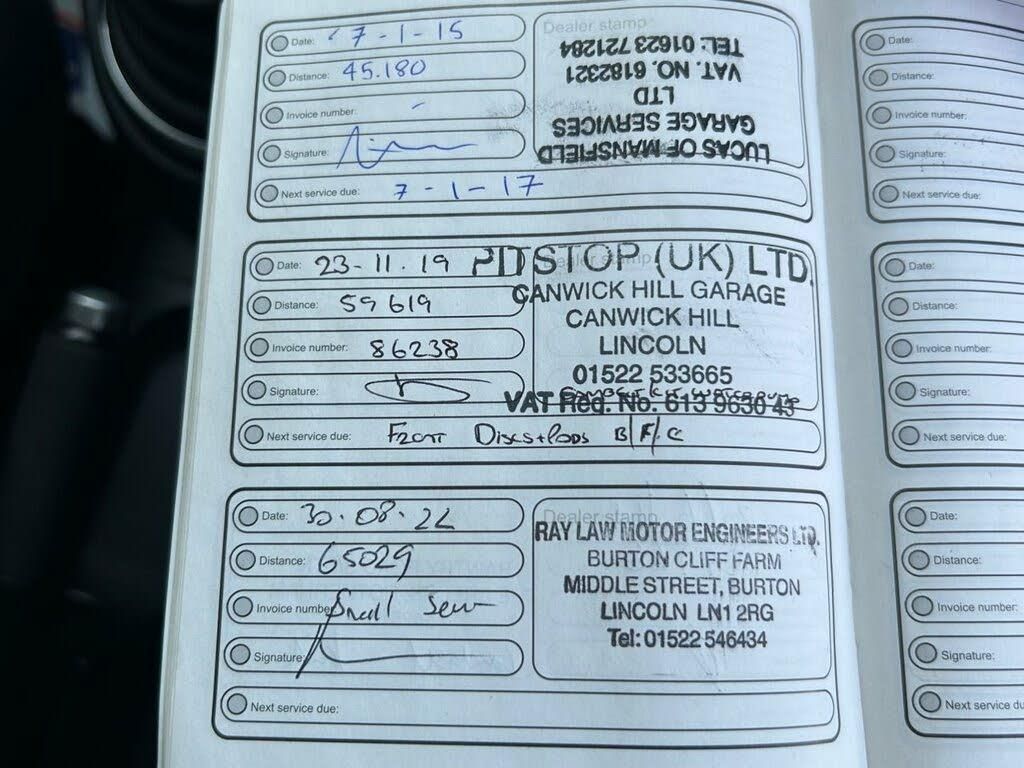 Date: 7-1-15
Distance: 45.180
Invoice number:
Signature:
Next service due: 7-1-17
Dealer stamp
LUCAS OF MANSFIELD
GARAGE SERVICES
LTD
VAT. NO. 6182321
TEL: 01623 721284
Date: 23-11.19
Distance: 59619
Invoice number: 86238
Signature:
Next service due: Front Discs+Pads B/F/C
PITSTOP (UK) LTD.
CANWICK HILL GARAGE
CANWICK HILL
LINCOLN
01522 533665
VAT Reg. No. 613 9636 43
Date: 30.08.22
Distance: 65029
Invoice number: Small
Signature:
Next service due:
Dealer stamp
RAY LAW MOTOR ENGINEERS LTD.
BURTON CLIFF FARM
MIDDLE STREET, BURTON
LINCOLN LN1 2RG
Tel: 01522 546434
Date:
Distance:
Invoice number:
Signature:
Next service due:
Date:
Distance:
Invoice number:
Signature:
Next service due:
Date:
Distance:
Invoice number:
Signature:
Next service du